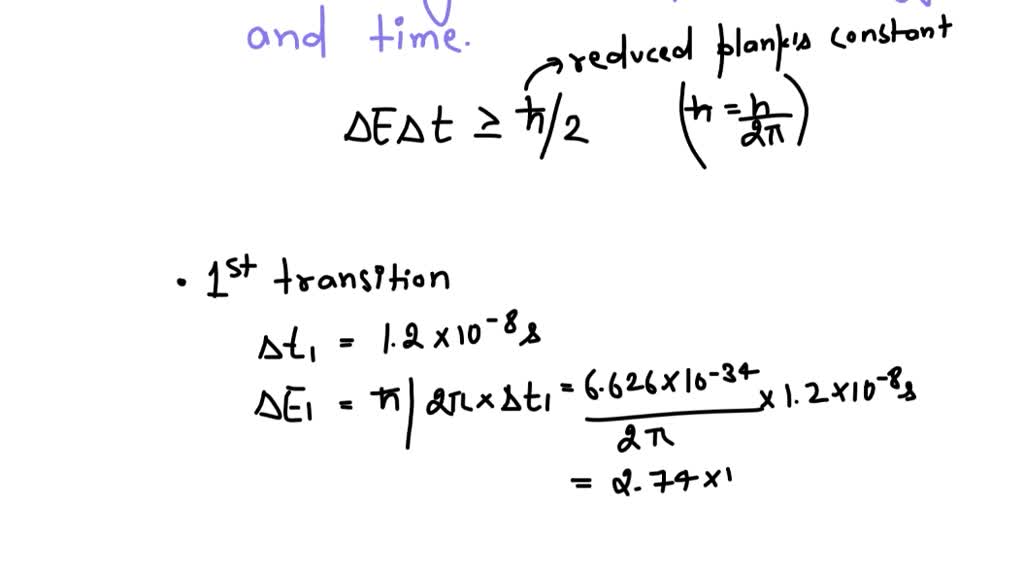 and time.
→ reduced plank's constant
ΔEΔt ≥ ħ/2 (ħ = h/2π)
• 1st transition
Δt₁ = 1.2 × 10⁻⁸ s
ΔE₁ = ħ / 2π × Δt₁ = 6.626 × 10⁻³⁴ / 2π × 1.2 × 10⁻⁸ s
= 2.74 × 1